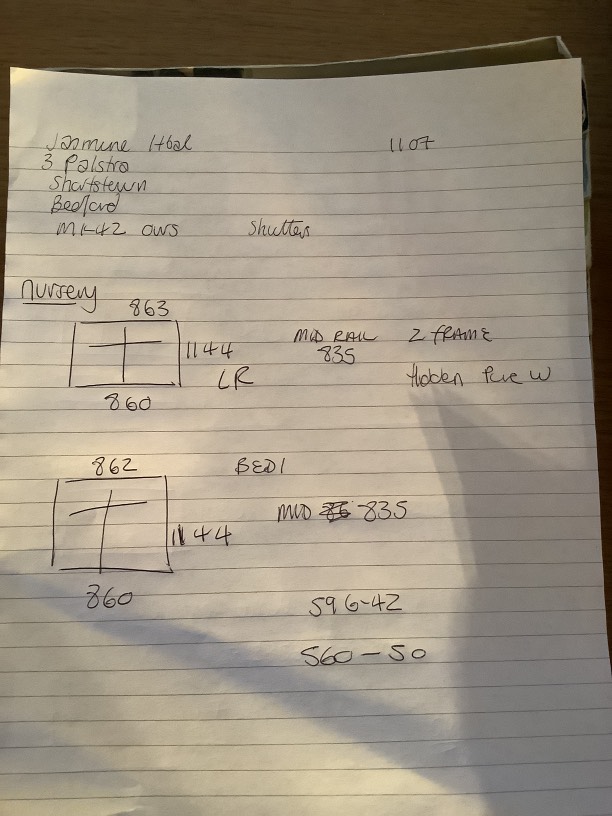 Jasmine
1107
3 Palstra
Shortstown
Bedford
MK42 0WS
Shutters
Nursery
863
1144
LR
860
MID RAIL
835
Z FRAME
Hidden Pure W
862
BED1
1144
MID 835
860
596-42
560-50